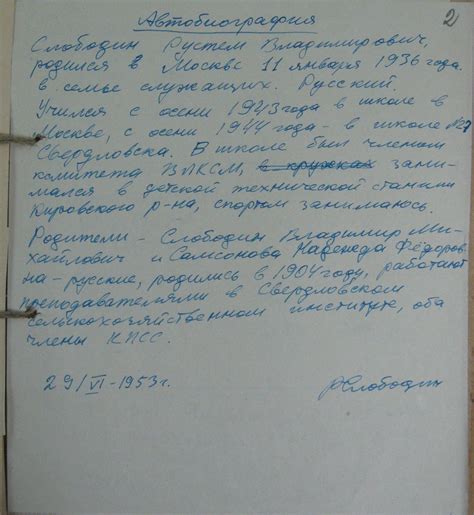 2
Автобиография
Слободин Рустем Владимирович,
родился в Москве 11 января 1936 года
в семье служащих. Русский.
Учился с осени 1943 года в школе в
Москве, с осени 1944 года - в школе №
Свердловска. В школе был членом
комитета ВЛКСМ, в кружках зани-
мался в детской технической станции
Кировского р-на, спортом занимаюсь.
Родители - Слободин Владимир Ми-
хайлович и Самсонова Надежда Фёдоров-
на - русские, родились в 1904 году, работают
преподавателями в Свердловском
сельскохозяйственном институте, оба
члены КПСС.
29/VI-1953г.
РСлободин